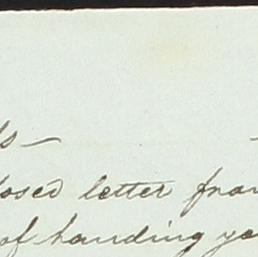 losed letter from
of handing yo